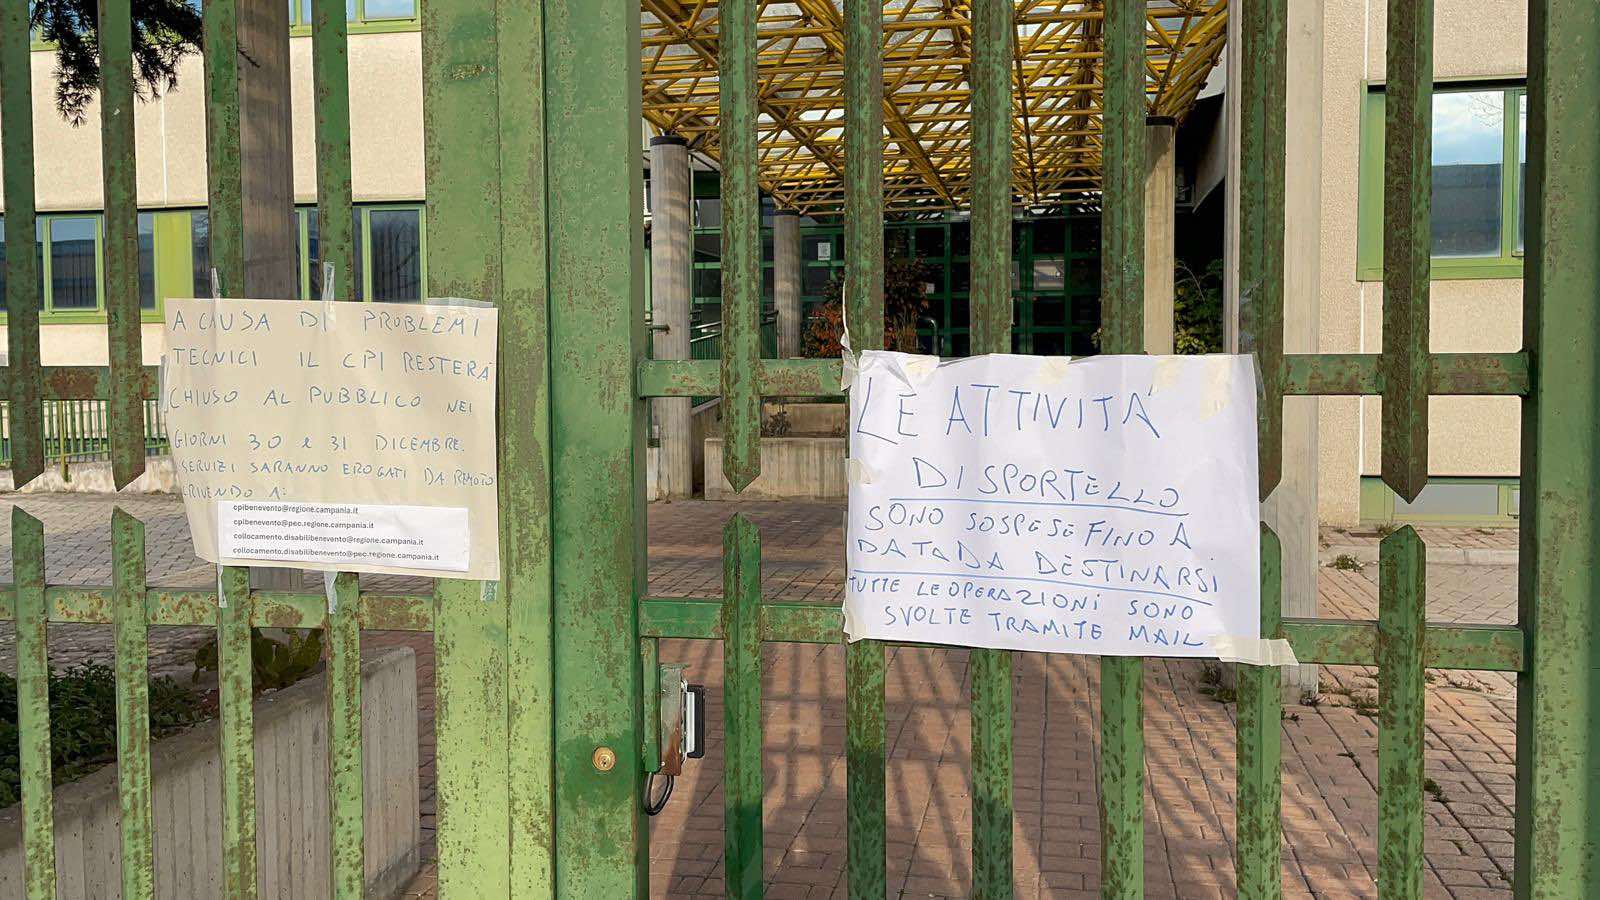 A CAUSA DI PROBLEMI
TECNICI IL CPI RESTERÀ
CHIUSO AL PUBBLICO NEI
GIORNI 30 e 31 DICEMBRE.
SERVIZI SARANNO EROGATI DA REMOTO
CRIVENDO A:
cpibenevento@regione.campania.it
cpibenevento@pec.regione.campania.it
collocamento.disabilibenevento@regione.campania.it
collocamento.disabilibenevento@pec.regione.campania.it
LE ATTIVITÀ
DI SPORTELLO
SONO SOSPESE FINO A
DATA DA DESTINARSI
TUTTE LE OPERAZIONI SONO
SVOLTE TRAMITE MAIL